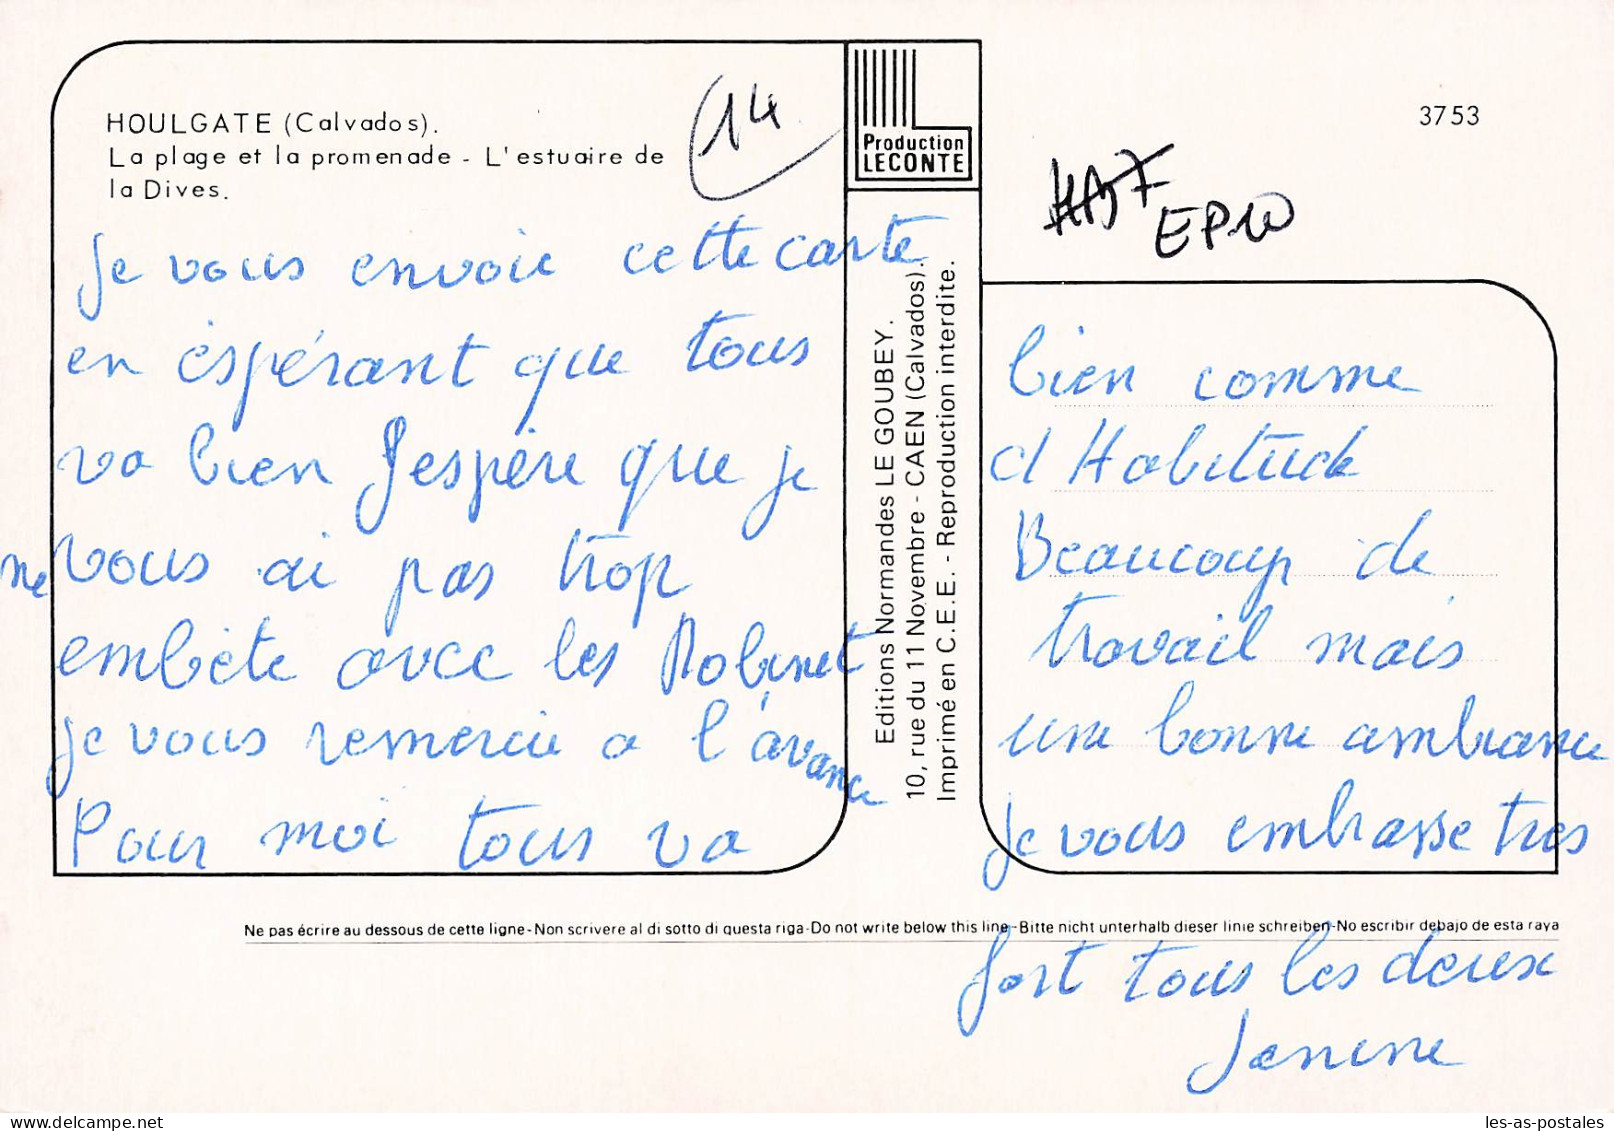 HOULGATE (Calvados).
La plage et la promenade - L'estuaire de
la Dives.
14
Production
LECONTE
3753
EP10
je vous envoie cette carte
en èspérant que tous
va bien J'espère que je
ne vous ai pas trop
embète avec les Robinet
je vous remercie a l'avance
Pour moi tous va
Editions Normandes LE GOUBEY.
10, rue du 11 Novembre - CAEN (Calvados).
Imprimé en C.E.E. - Reproduction interdite.
bien comme
d Habitude
Beaucoup de
travail mais
une bonne ambiance
je vous embrasse tres
Ne pas écrire au dessous de cette ligne-Non scrivere al di sotto di questa riga-Do not write below this line-Bitte nicht unterhalb dieser linie schreiben-No escribir debajo de esta raya
fort tous les deux
Janine
les-as-postales